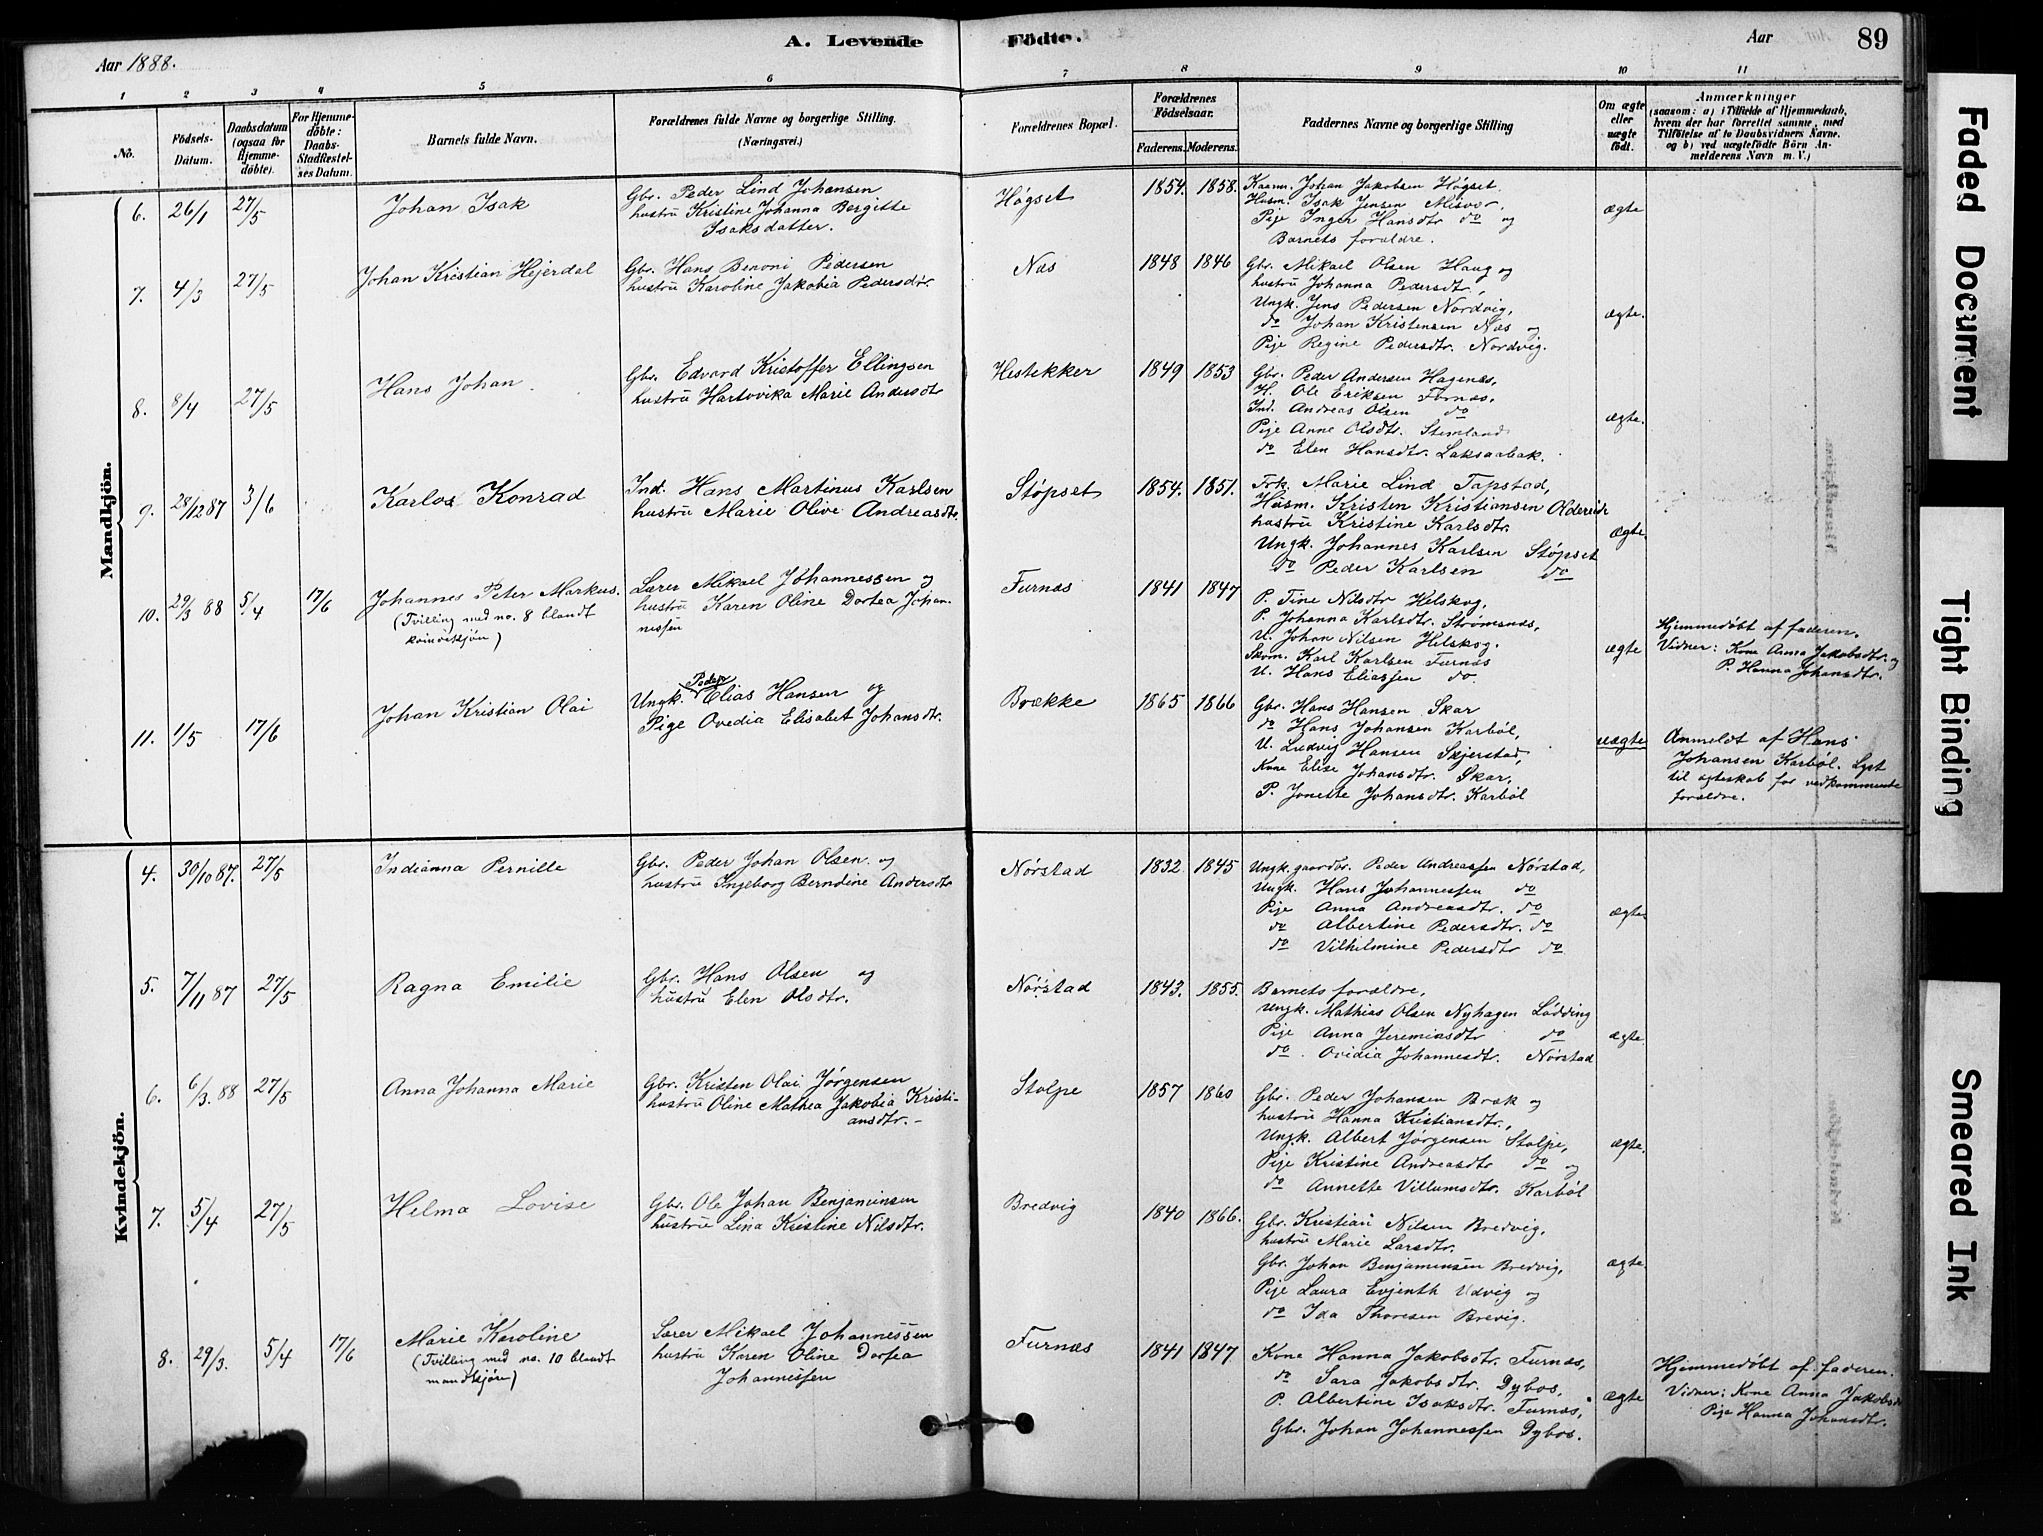 A. Levende Födte.
Aar 1888.
Aar
89
1 2 3 4 5 6 7 8 9 10 11
No.
Födsels-Datum.
Daabsdatum (ogsaa for Hjemme-döbte).
For Hjemme-döbte: Daabs-Stadfæstel-ses Datum.
Barnets fulde Navn.
Forældrenes fulde Navne og borgerlige Stilling.
(Næringsvei.)
Forældrenes Bopæl.
Forældrenes Födselsaar.
Faderens. Moderens.
Faddernes Navne og borgerlige Stilling
Om ægte eller uægte födt.
Anmærkninger
(saasom: a) i Tilfælde af Hjemmedaab,
hvem der har forrettet samme, med
Tilföielse af to Daabsvidners Navne.
og b) ved uægtefödte Börn An-
melderens Navn m. V.)
Mandkjön.
6. 26/1 27/5 Johan Isak
Gbr. Peder Lind Johansen
hustru Kristine Johanna Bergitte
Isaksdatter.
Høgset 1854. 1858.
Kaarm. Johan Jakobsen Høgset.
Husm. Isak Jensen Misvær.
Pije Inger Hansdtr do og
Barnets forældre.
ægte
7. 4/3 27/5 Johan Kristian Hejerdal
Gbr. Hans Benoni Pedersen
hustru Karoline Jakobia Pedersdtr.
Næs 1848 1846
Gbr. Mikael Olsen Haug og
hustru Johanna Pedersdtr,
Ungk. Jens Pedersen Nordvig,
do Johan Kristensen Næs og
Pije Regine Pedersdtr. Nordvig.
ægte.
8. 8/4 27/5 Hans Johan.
Gbr. Edvard Kristoffer Ellingsen
hustru Hartvika Marie Andersdtr
Hestekker 1849 1853
Gbr. Peder Andersen Hagenæs,
H. Ole Eriksen Fornæs.
Ind. Andreas Olsen do
Pije Anne Olsdtr. Stemland
do Elen Hansdtr. Laksaabak.
ægte.
9. 28/12 87 3/6 Karlos Konrad
Ind. Hans Martinus Karlsen
hustru Marie Olive Andreasdtr.
Støpset 1854. 1851.
Frk. Marie Lind Tapstad,
Husm. Kristen Kristiansen
hustru Kristine Karlsdtr.
Ungk. Johannes Karlsen Støpset
do Peder Karlsen do
ægte
10. 29/3 88 5/4 17/6 Johannes Peter Markus.
(Tvilling med no. 8 blandt
kvindekjön)
Lærer Mikael Johannessen og
hustru Karen Oline Dortea Johan-
nessen
Furnæs 1841 1847
P. Tine Nilsdtr Helskog,
P. Johanna Karlsdtr. Strömsnæs,
U. Johan Nilsen Helskog.
Skom. Karl Karlsen Furnæs
U. Hans Eliassen do.
ægte
Hjemmedøbt af faderen.
Vidner: Kone Anna Jakobsdtr. og
P. Hanna Johansdtr.
11. 1/5 17/6 Johan Kristian Olai
Peder
Ungk. Elias Hansen og
Pige Ovedia Elisabet Johansdtr.
Brække 1865 1866
Gbr. Hans Hansen Skar
do Hans Johansen Karbøl,
U. Ludvig Hansen Skjerstad,
Kone Elise Johansdtr. Skar,
P. Jonette Johansdtr. Karbøl
uægte
Anmeldt af Hans
Johansen Karbøl. Lyst
til ægteskab for vedkommende
forældre.
Kvindekjön.
4. 30/10 87. 27/5 Indianna Pernille
Gbr. Peder Johan Olsen og
hustru Ingeborg Berndine Andersdtr
Nørstad 1832 1845
Ungk. gaardbr. Peder Andreassen Nørstad,
Ungk. Hans Johannessen do
Pije Anna Andreasdtr. do
do Albertine Pedersdtr. do
do Vilhelmine Pedersdtr do
ægte.
5. 7/11 87 27/5 Ragna Emilie
Gbr. Hans Olsen og
hustru Elen Olsdtr.
Nørstad 1843. 1855.
Barnets forældre,
Ungk. Mathias Olsen Nyhagen Lødding
Pije Anna Jeremiasdtr do
do. Ovidia Johannesdtr. Nørstad
ægte.
6. 6/3. 88 27/5 Anna Johanna Marie
Gbr. Kristen Olai Jørgensen
hustru Oline Mathea Jakobia Kristi-
ansdtr.-
Stolpe 1857 1860
Gbr. Peder Johansen Bræk og
hustru Hanna Kristiansdtr.,
Ungk. Albert Jørgensen Stolpe,
Pije Kristine Andreasdtr do og
do Annette Villumsdtr. Karbøl
ægte.
7. 5/4 27/5 Helma Lovise
Gbr. Ole Johan Benjaminsen
hustru Lina Kristine Nilsdtr.
Bredvig 1840 1866.
Gbr. Kristian Nilsen Bredvig,
hustru Marie Larsdtr.
Gbr. Johan Benjaminsen Bredvig,
Pije Laura Evjenth Udvig og
do Ida Thoresen Brevig.
ægte.
8. 29/3. 5/4 17/6 Marie Karoline
(Tvilling med no. 10 blandt
mandkjön)
Lærer Mikael Johannessen
hustru Karen Oline Dortea
Johannessen
Furnæs 1841 1847
Kone Hanna Jakobsdtr. Furnæs,
do Sara Jakobsdtr. Dybos.
P. Albertine Isaksdtr. Furnæs,
Gbr. Johan Johannessen Dybos.
ægte
Hjemmedøbt af faderen.
Vidner: Kone Anna Jakobsd
Pije Hanna Johansdtr.
Faded Document
Tight Binding
Smeared Ink